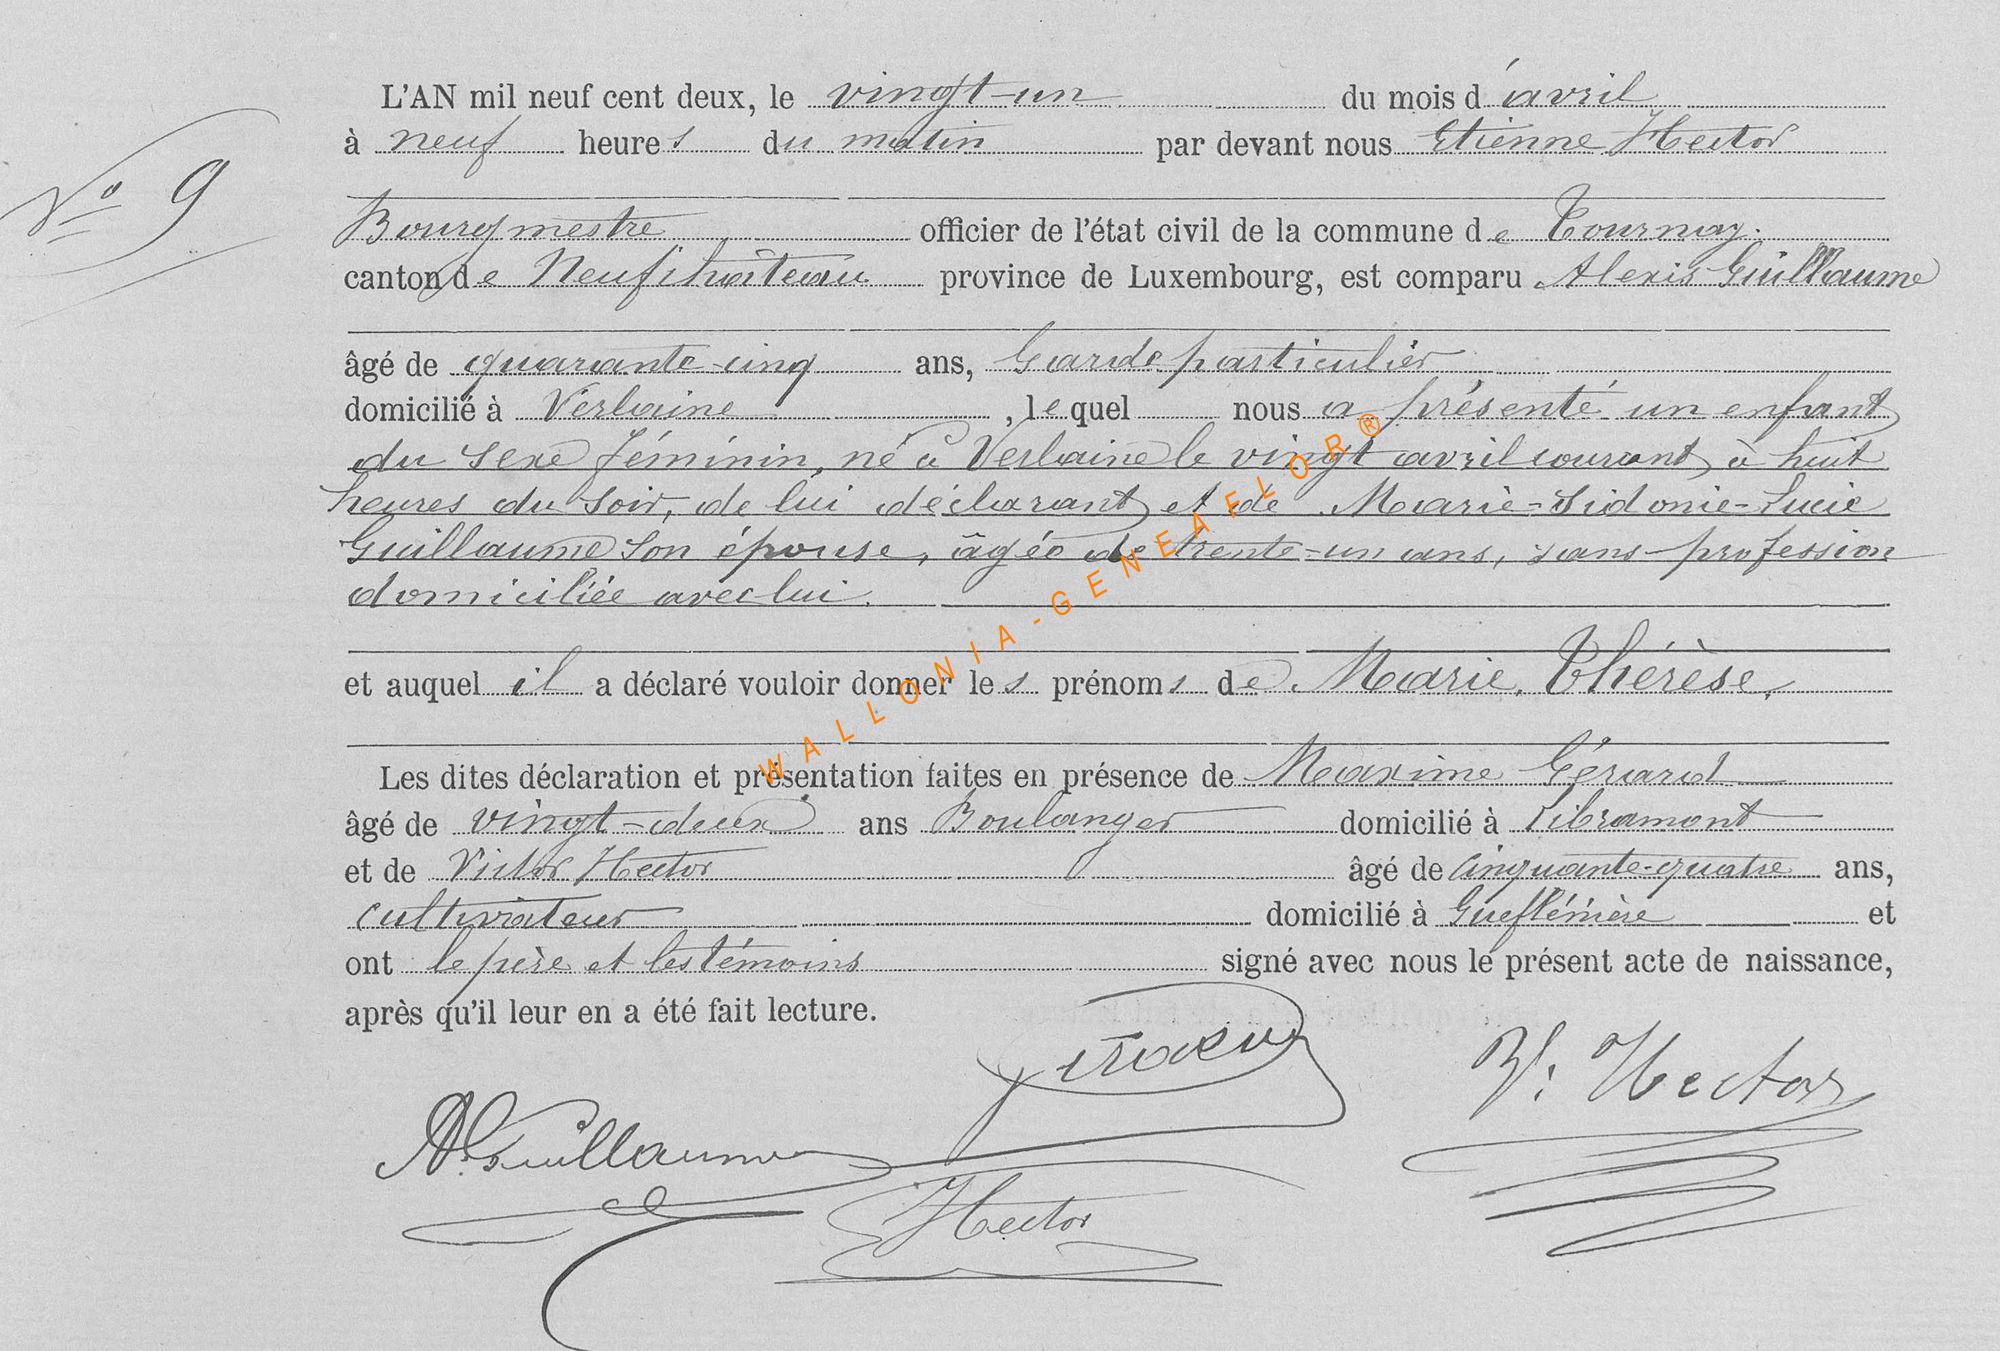 L'AN mil neuf cent deux, le vingt-un du mois d'avril
à neuf heures du matin par devant nous Etienne Hector
N° 9
Bourgmestre officier de l'état civil de la commune de Tournay.
canton de Neufchâteau province de Luxembourg, est comparu Alexis Guillaume
âgé de quarante-cinq ans, Garde particulier
domicilié à Verlaine, lequel nous a présenté un enfant
du sexe féminin, né à Verlaine le vingt avril courant, à huit
heures du soir, de lui déclarant et de Marie-Sidonie-Lucie
Guillaume son épouse, âgée de trente-un ans, sans profession
domiciliée avec lui.
et auquel il a déclaré vouloir donner les prénoms de Marie, Thérèse,
Les dites déclaration et présentation faites en présence de Maxime Gérard
âgé de vingt-deux ans Boulanger domicilié à Libramont
et de Victor Hector âgé de cinquante-quatre ans,
cultivateur domicilié à et
ont le père et les témoins signé avec nous le présent acte de naissance,
après qu'il leur en a été fait lecture.
V. Hector
A. Guillaume
Hector
WALLONIA-GENEAFLOR®